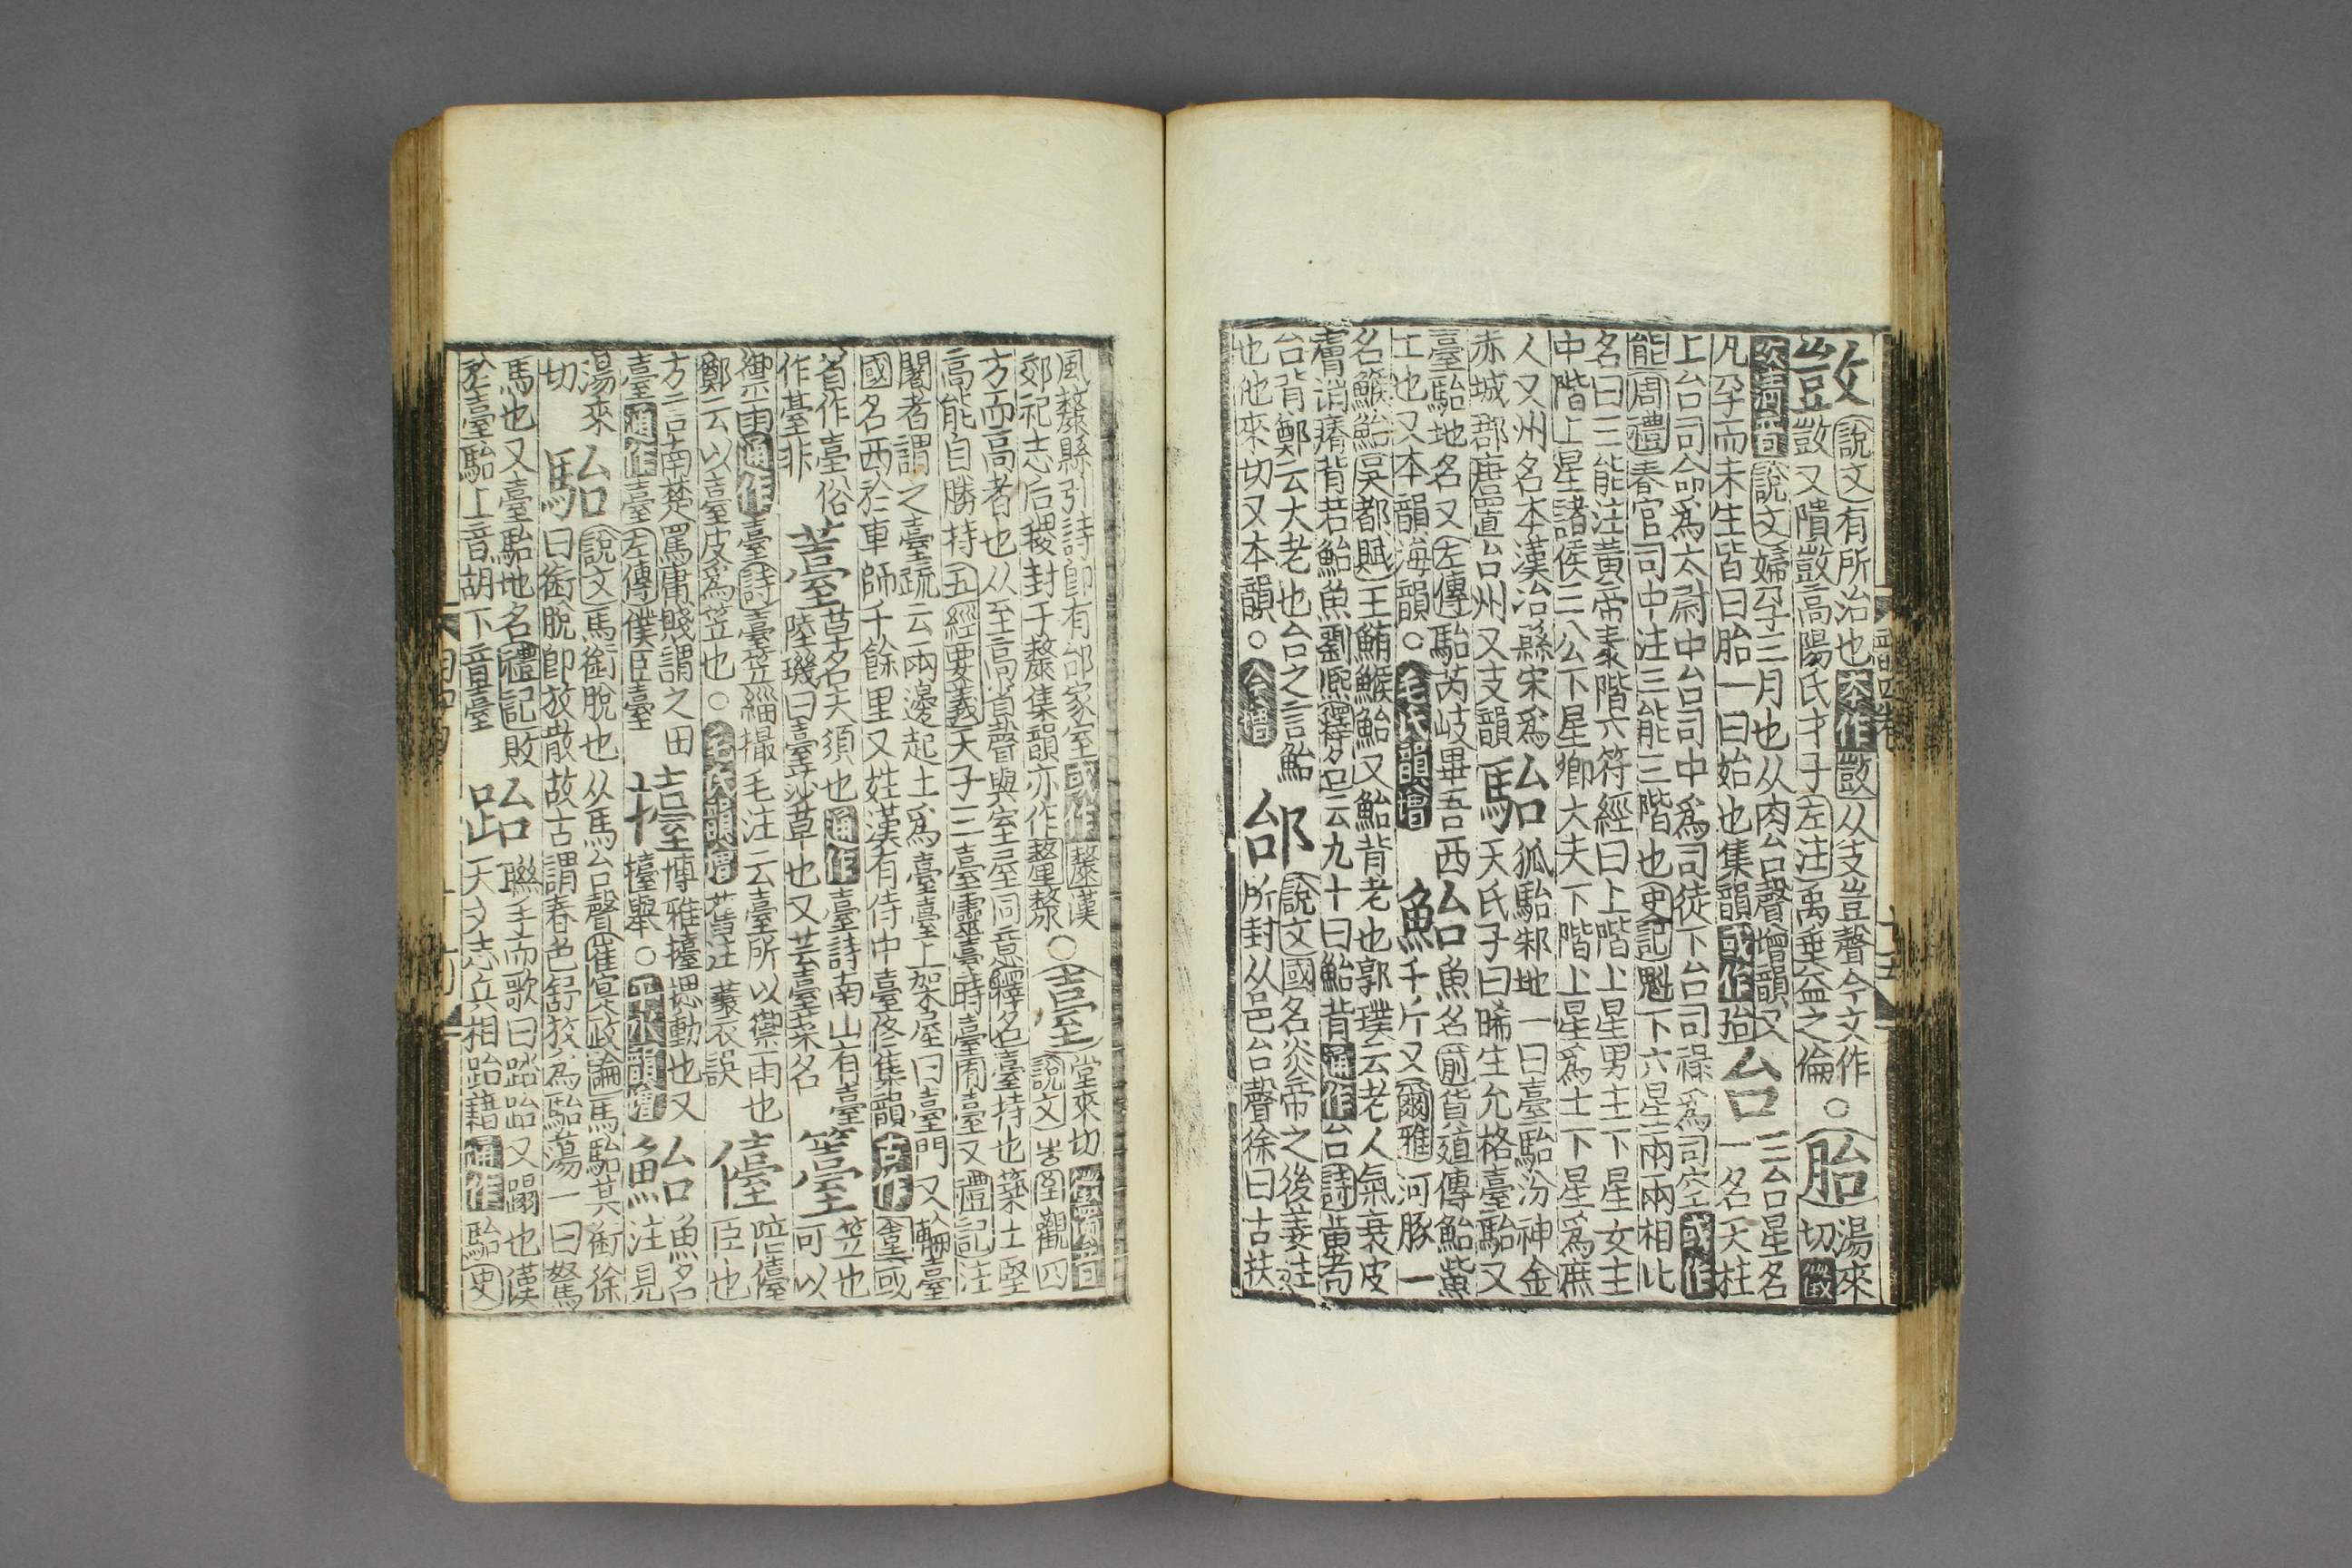 敳說文有所治也本作敳从攴豈聲今文作
敳又隤敳高陽氏才子左注禹垂益之倫○胎湯來切徵
次清音說文婦孕三月也从肉台聲增韻又
凡孕而未生皆曰胎一曰始也集韻或作孡台三台星名一名天柱
上台司命爲太尉中台司中爲司徒下台司祿爲司空或作
能周禮春官司中注三能三階也史記魁下六星兩兩相比
名曰三能注黃帝泰階六符經曰上階上星男主下星女主
中階上星諸侯三公下星卿大夫下階上星爲士下星爲庶
人又州名本漢冶縣宋爲
赤城郡唐置台州又支韻駘狐駘邾地一曰臺駘汾神金
天氏子曰晞生允格臺駘又
臺駘地名又左傳駘芮岐畢吾西
土也又本韻海韻○毛氏韻增鮐魚名前貨殖傳鮐鮆
千斤又爾雅河豚一
名鯸鮐吳都賦王鮪鯸鮐又鮐背老也郭璞云老人氣衰皮
膚消瘠背若鮐魚劉熙釋名云九十曰鮐背通作台詩黃耇
台背鄭云大老也台之言鮐
也他來切又本韻○今增邰說文國名炎帝之後姜姓
所封从邑台聲徐曰古扶
風斄縣引詩卽有邰家室或作斄漢
郊祀志后稷封于斄集韻亦作釐氂○臺堂來切徵濁音
說文㞢至觀四
方而高者也从至高省聲與室屋同意釋名臺持也築土堅
高能自勝持五經要義天子三臺靈臺時臺囿臺又禮記注
闍者謂之臺疏云兩邊起土爲臺臺上架屋曰臺門又輶臺
國名西於車師千餘里又姓漢有侍中臺佟集韻古作或
省作臺俗
作非薹草名夫須也通作臺詩南山有臺
陸璣曰臺莎草也又芸薹菜名籉笠也可以
禦雨通作臺詩臺笠緇撮毛注云臺所以禦雨也
鄭云以臺皮爲笠也○毛氏韻增舊注蓑衣誤儓陪儓臣也
方言南楚罵庸賤謂之田
臺通作臺左傳僕臣臺擡博雅擡揌動也又
擡舉○平水韻增鮐魚名注見
湯來切駘說文馬銜脫也从馬台聲崔寔政論馬駘其銜徐
曰銜脫卽放散故古謂春色舒放爲駘蕩一曰駑
馬也又臺駘地名禮記敗
於臺駘上音胡下音臺跆聯手而歌曰跆跆又躢也漢
天文志兵相跆籍通作駘史